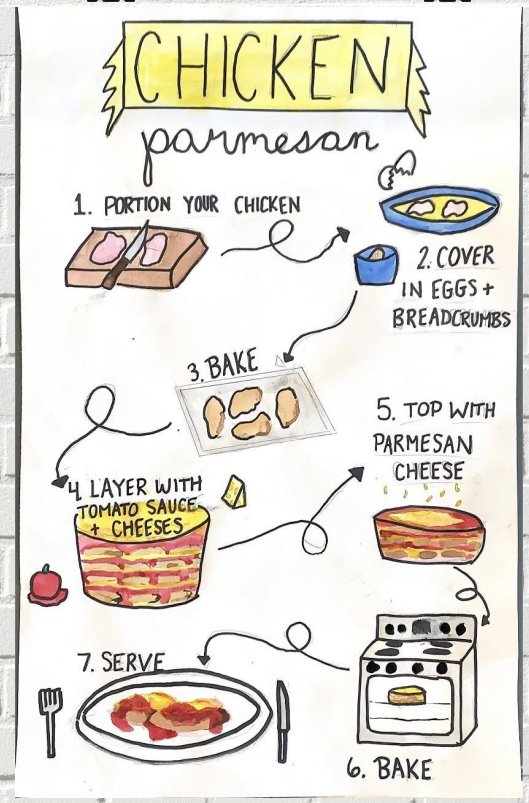 CHICKEN
parmesan
1. PORTION YOUR CHICKEN
2. COVER
IN EGGS +
BREADCRUMBS
3. BAKE
4. LAYER WITH
TOMATO SAUCE
+ CHEESES
5. TOP WITH
PARMESAN
CHEESE
6. BAKE
7. SERVE